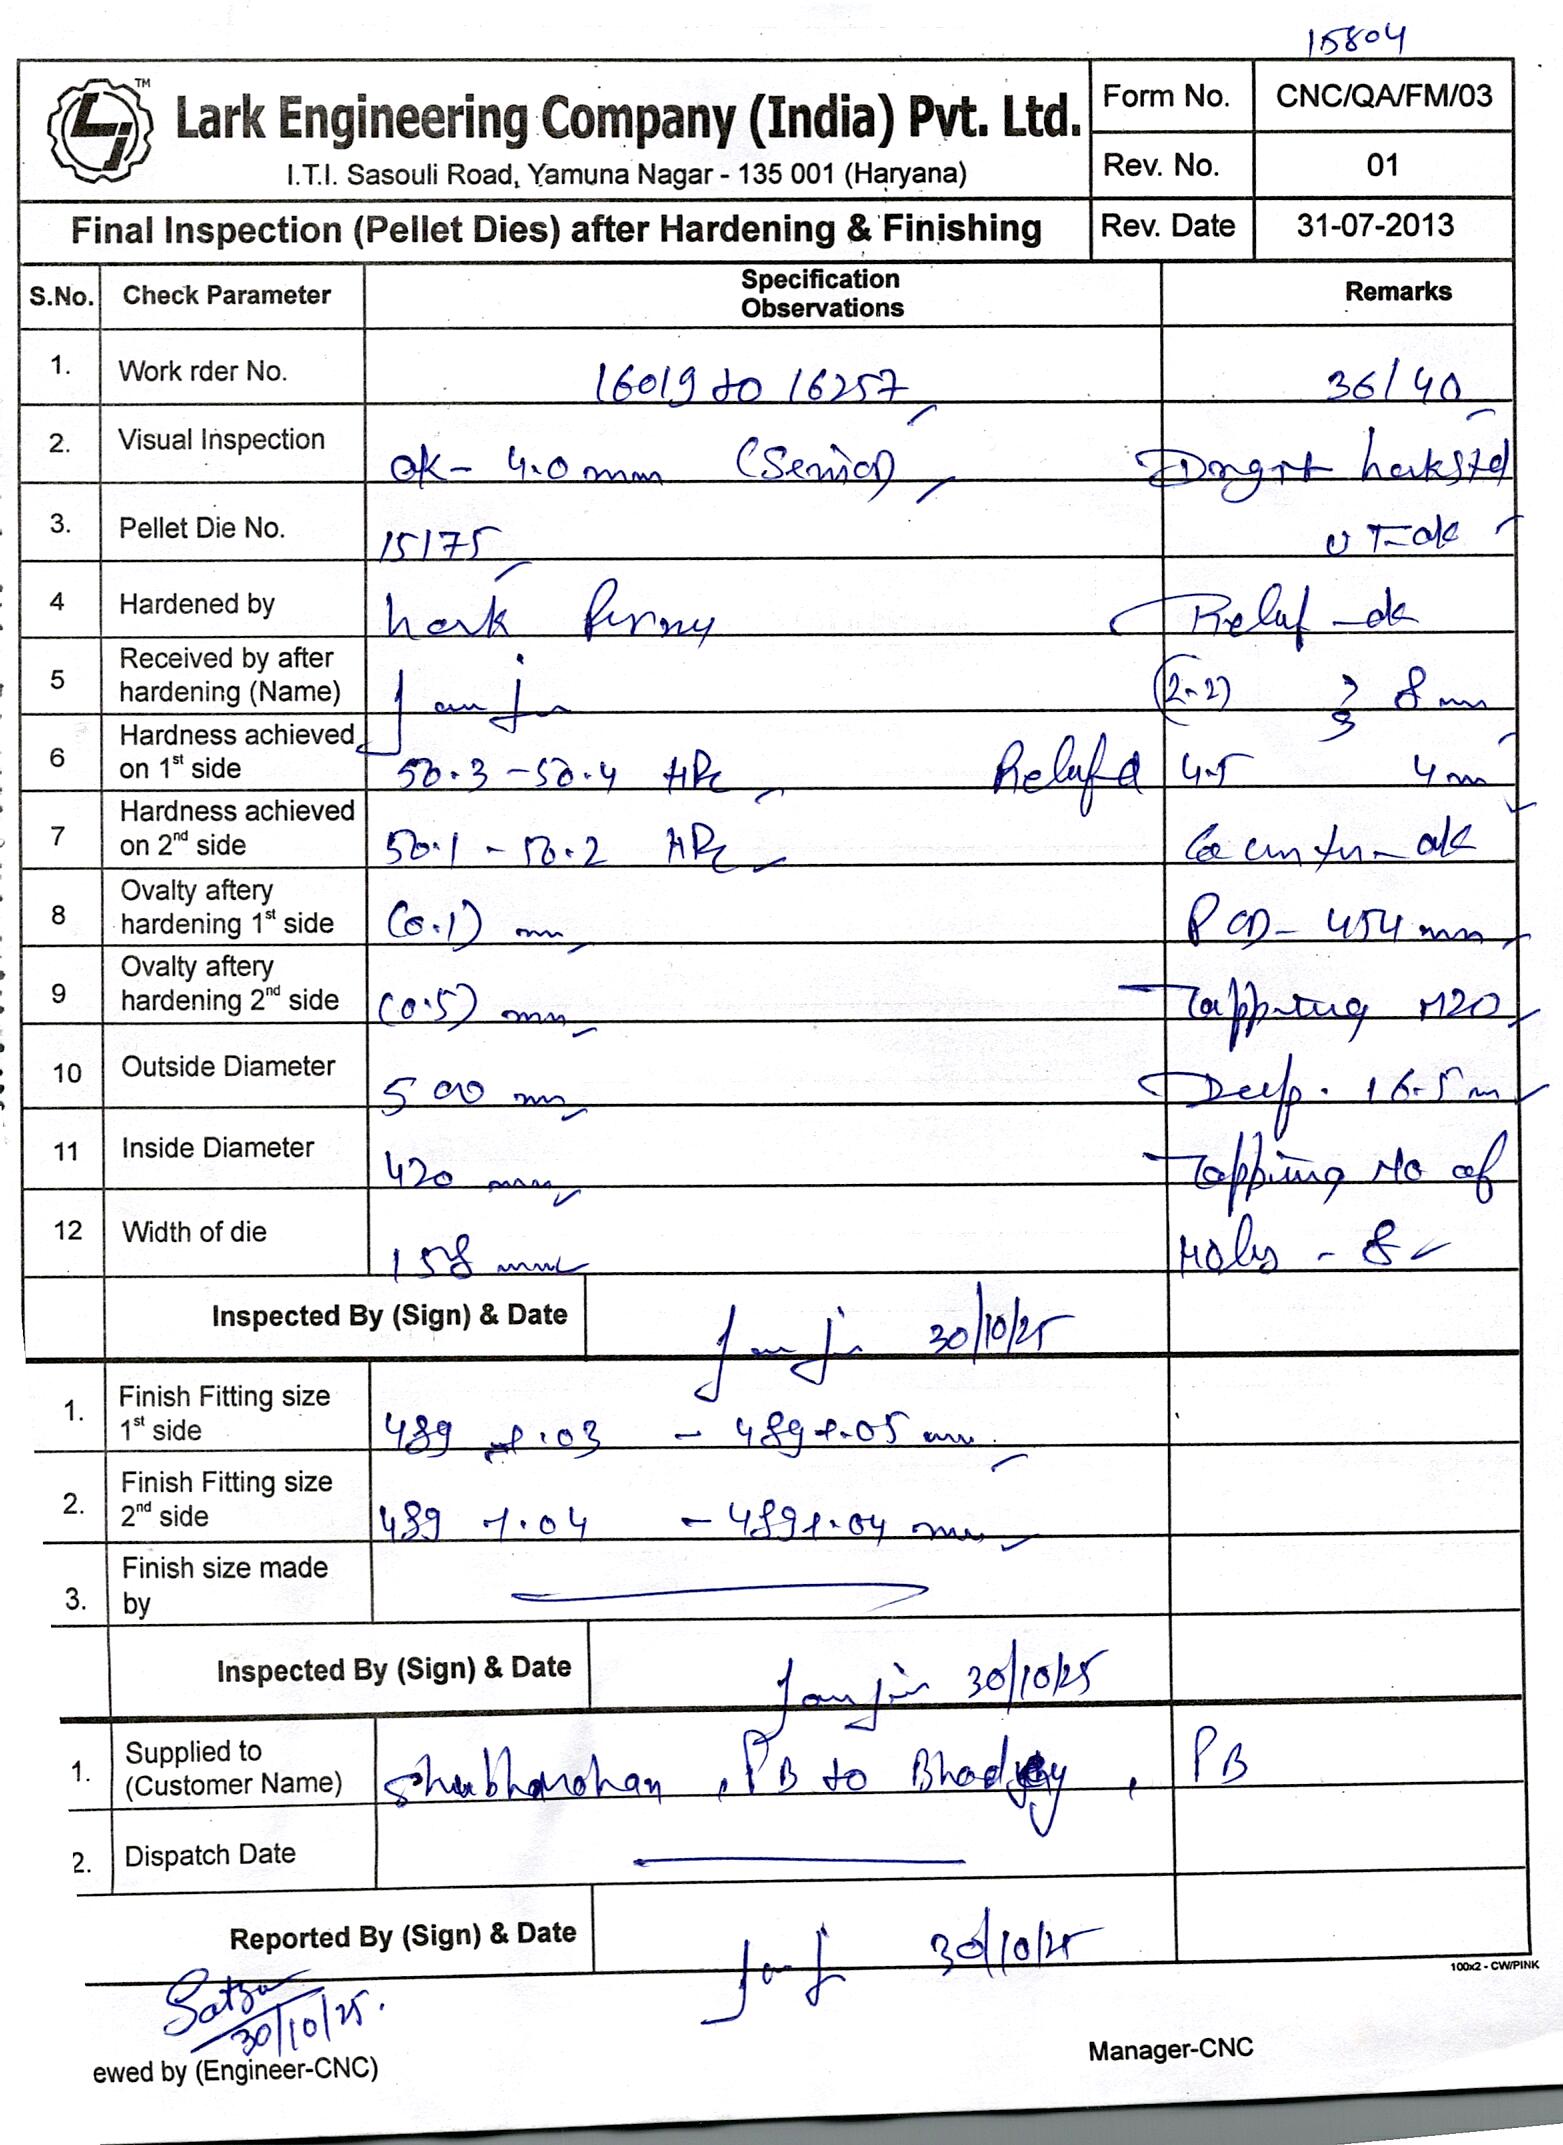 15804
Lark Engineering Company (India) Pvt. Ltd.
TM
I.T.I. Sasouli Road, Yamuna Nagar - 135 001 (Haryana)
Form No. CNC/QA/FM/03
Rev. No. 01
Final Inspection (Pellet Dies) after Hardening & Finishing
Rev. Date 31-07-2013
S.No. Check Parameter Specification Observations Remarks
1. Work rder No. 16019 to 16257 36/40
2. Visual Inspection ok - 4.0 mm
3. Pellet Die No. 15175 UT-ok
4 Hardened by Relief - ok
5 Received by after hardening (Name) (2-2) 8 mm
6 Hardness achieved on 1st side 50.3 - 50.4 HRc 4.5 4 mm
7 Hardness achieved on 2nd side 50.1 - 50.2 HRc ok
8 Ovalty aftery hardening 1st side (0.1) mm PCD - 454 mm
9 Ovalty aftery hardening 2nd side (0.5) mm Tapping M20
10 Outside Diameter 500 mm Deep. 16.5 m
11 Inside Diameter 420 mm Tapping No of
12 Width of die 158 mm Holes - 8
Inspected By (Sign) & Date 30/10/25
1. Finish Fitting size 1st side 489 +.03 - 489+.05 mm
2. Finish Fitting size 2nd side 489 +.04 - 489+.04 mm
3. Finish size made by
Inspected By (Sign) & Date 30/10/25
1. Supplied to (Customer Name) Shubharohan, PB to PB
2. Dispatch Date
Reported By (Sign) & Date 30/10/25
100x2 - CW/PINK
30/10/25.
ewed by (Engineer-CNC)
Manager-CNC